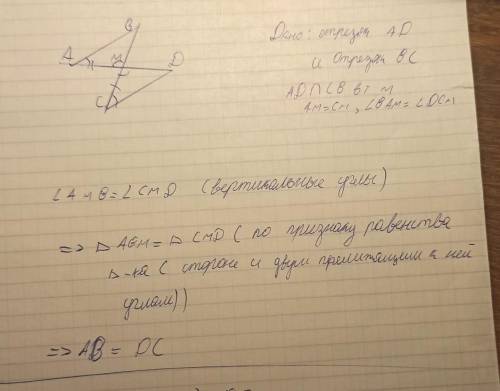 B
A M D
C
Дано: отрезки AD
и отрезки BC
AD ∩ CB в т M
AM = CM, ∠BAM = ∠DCM
∠AMB = ∠CMD (вертикальные углы)
=> △ABM = △CMD (по признаку равенства
△-ка (стороне и двум прилижащим к ней
углам))
=> AB = DC